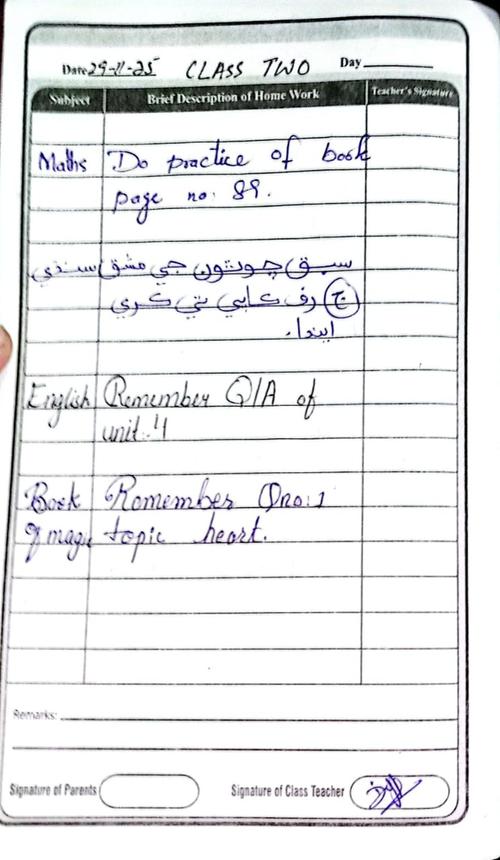 Date 29-11-25 CLASS TWO Day
Subject Brief Description of Home Work Teacher's Signature
Maths Do practice of book
page no: 89.
سنڌي سبق چوٿون جي مشق
(ج) رف ڪاپي تي ڪري
ايندا.
English Remember Q/A of
unit.4
Book Romember Qno:1
of magic topic heart.
Remarks:
Signature of Parents Signature of Class Teacher